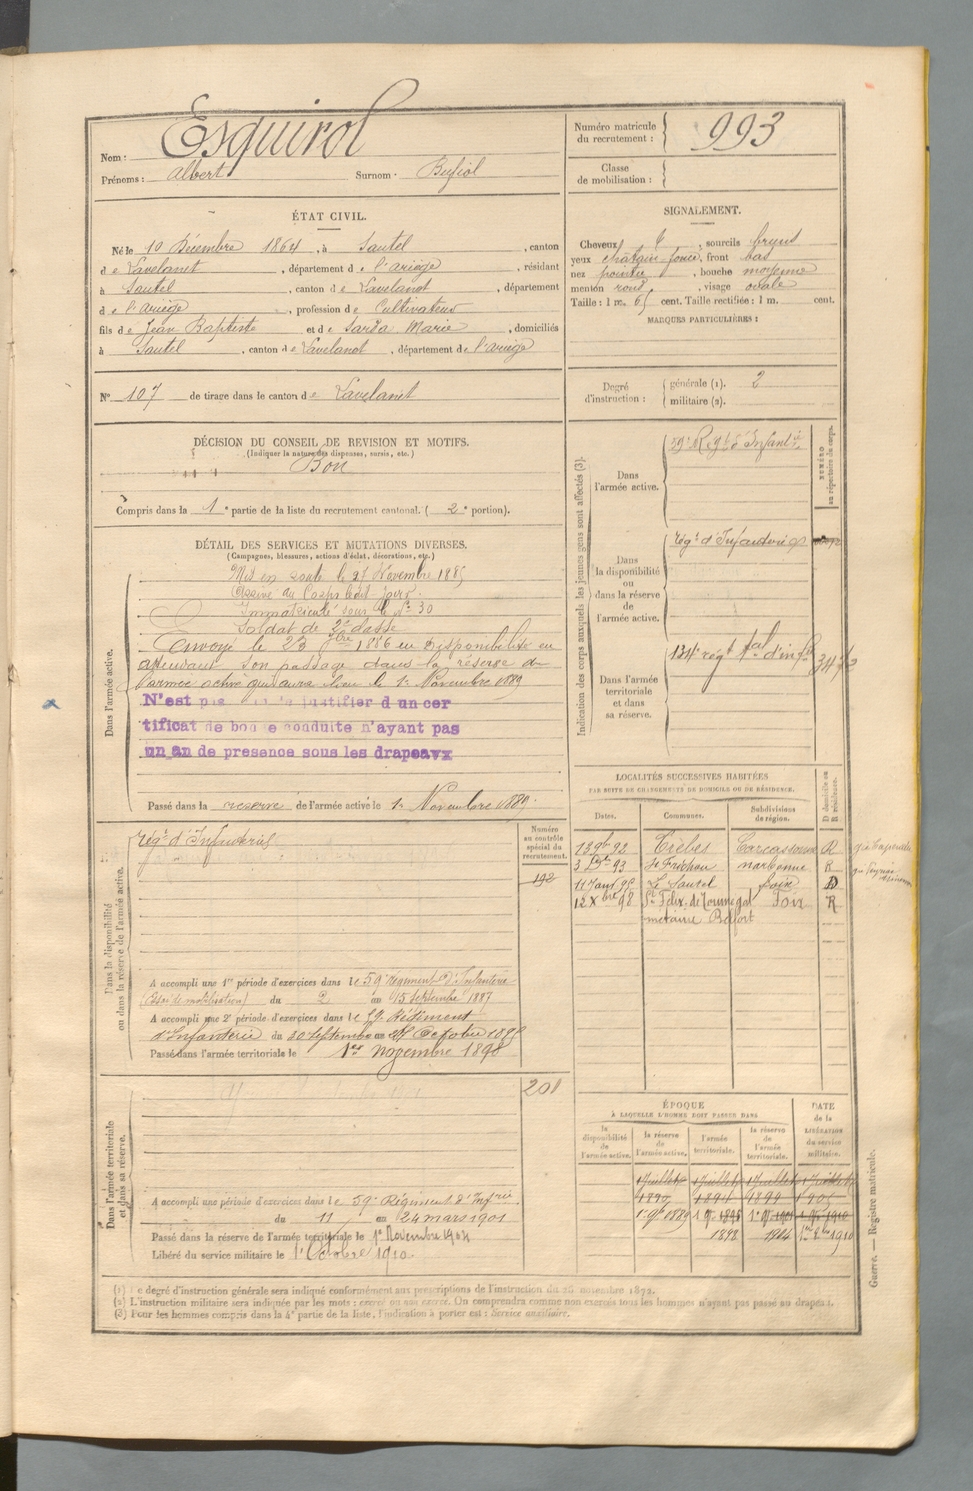 Nom : Esquirol
Prénoms : Albert Surnom : Bufiol
Numéro matricule
du recrutement : 993
Classe
de mobilisation :
ÉTAT CIVIL.
Né le 10 Décembre 1864, à Sautel, canton
de Lavelanet, département de l'ariège, résidant
à Sautel, canton de Lavelanet, département
de l'ariège, profession de Cultivateur
fils de Jean Baptiste et de Sarda Marie, domiciliés
à Sautel, canton de Lavelanet, département de l'ariège
N° 107 de tirage dans le canton de Lavelanet
SIGNALEMENT.
Cheveux et, sourcils bruns
yeux chatain foncé, front bas
nez pointu, bouche moyenne
menton rond, visage ovale
Taille : 1 m. 65 cent. Taille rectifiée : 1 m. cent.
MARQUES PARTICULIÈRES :
Degré
d'instruction :
générale (1). 2
militaire (2).
DÉCISION DU CONSEIL DE REVISION ET MOTIFS.
(Indiquer la nature des dispenses, sursis, etc.)
Bon
Compris dans la 1e partie de la liste du recrutement cantonal. (2e portion).
DÉTAIL DES SERVICES ET MUTATIONS DIVERSES.
(Campagnes, blessures, actions d'éclat, décorations, etc.)
Dans l'armée active.
Mis en route le 27 Novembre 1885
Arrivé au Corps ledit jour.
Immatriculé sous le N° 30
Soldat de 2e classe
Envoyé le 23 7bre 1886 en Disponibilité en
attendant son passage dans la réserve de
l'armée active qui aura lieu le 1er Novembre 1889
N'est pas justifier d un cer
tificat de bonne conduite n'ayant pas
un an de presence sous les drapeavx
Passé dans la reserve de l'armée active le 1er Novembre 1889.
Indication des corps auxquels les jeunes gens sont affectés (3).
NUMÉRO
au répertoire du corps.
Dans
l'armée active.
59e Régt d'Infantie
Dans
la disponibilité
ou
dans la réserve
de
l'armée active.
régt d'Infanterie
Dans l'armée
territoriale
et dans
sa réserve.
134e régt tal d'infie
LOCALITÉS SUCCESSIVES HABITÉES
PAR SUITE DE CHANGEMENTS DE DOMICILE OU DE RÉSIDENCE.
Dates. Communes. Subdivisions
de région.
D domicile ou
R résidence.
Trèbes Carcassonne R
93 narbonne R
Le Sautel Foix D
12 Xbre 98 St Felix de Tournegat Foix R
metairie Belfort
Dans la disponibilité
ou dans la réserve de l'armée active.
Numéro
au contrôle
spécial du
recrutement.
192
régt d'Infanterie
A accompli une 1re période d'exercices dans le 59e régiment d'Infanterie
(Essai de mobilisation) du 2 au 15 septembre 1887
A accompli une 2e période d'exercices dans le 59e Régiment
d'Infanterie du 30 Septembre au
Passé dans l'armée territoriale le 1er novembre 1898
Dans l'armée territoriale
et dans sa réserve.
201
A accompli une période d'exercices dans le 59e Régiment d'Infrie
du 11 au 24 mars 1901
Passé dans la réserve de l'armée territoriale le 1er Novembre 1904
Libéré du service militaire le 1er Octobre 1910.
ÉPOQUE
À LAQUELLE L'HOMME DOIT PASSER DANS
DATE
de la
LIBÉRATION
du service
militaire.
la
disponibilité
de
l'armée active.
la réserve
de
l'armée active.
l'armée
territoriale.
la réserve
de
l'armée
territoriale.
1er Juillet 1er Juillet 1er Juillet 1er Juillet
1890 1894 1899 1905
1898 1904
Guerre. — Registre matricule.
(1) Le degré d'instruction générale sera indiqué conformément aux prescriptions de l'instruction du 26 novembre 1872.
(2) L'instruction militaire sera indiquée par les mots : exercé ou non exercé. On comprendra comme non exercés tous les hommes n'ayant pas passé au drapeau.
(3) Pour les hommes compris dans la 4e partie de la liste, l'indication à porter est : Service auxiliaire.